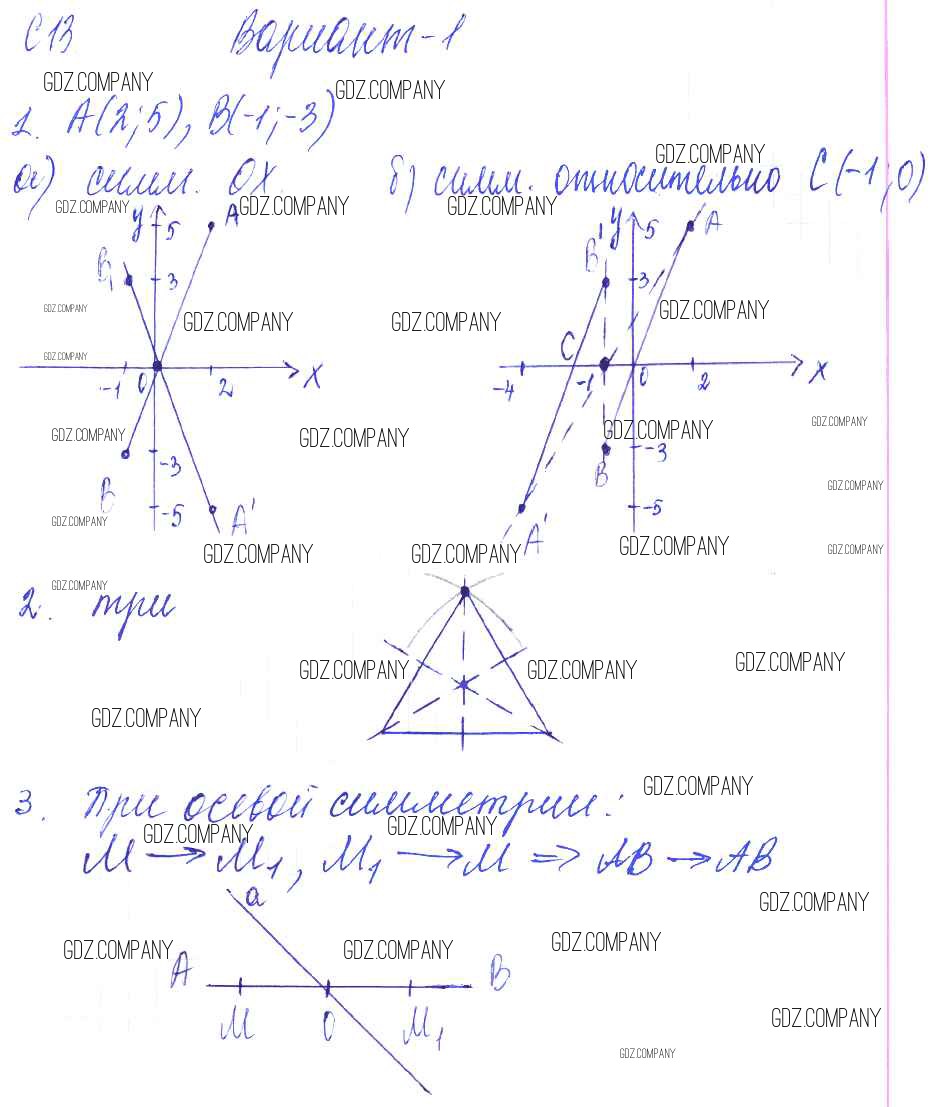 С13 Вариант-1
GDZ.COMPANY GDZ.COMPANY
1. А(2;5), В(-1;-3)
GDZ.COMPANY
а) симм. ОХ. б) симм. относительно С(-1;0)
GDZ.COMPANY GDZ.COMPANY GDZ.COMPANY
y 5 A
B₁ 3
-1 0 2 X
-3
B -5 A'
y 5 A
B' 3
C
-4 -1 0 2 X
B -3
A' -5
GDZ.COMPANY GDZ.COMPANY GDZ.COMPANY GDZ.COMPANY
GDZ.COMPANY
GDZ.COMPANY GDZ.COMPANY GDZ.COMPANY GDZ.COMPANY
GDZ.COMPANY
GDZ.COMPANY
GDZ.COMPANY GDZ.COMPANY GDZ.COMPANY GDZ.COMPANY
GDZ.COMPANY
2. три
GDZ.COMPANY GDZ.COMPANY GDZ.COMPANY
GDZ.COMPANY
GDZ.COMPANY
3. При осевой симметрии:
GDZ.COMPANY GDZ.COMPANY
М → М₁, М₁ → М => АВ → АВ
a
GDZ.COMPANY
GDZ.COMPANY GDZ.COMPANY GDZ.COMPANY
A B
M O M₁
GDZ.COMPANY
GDZ.COMPANY